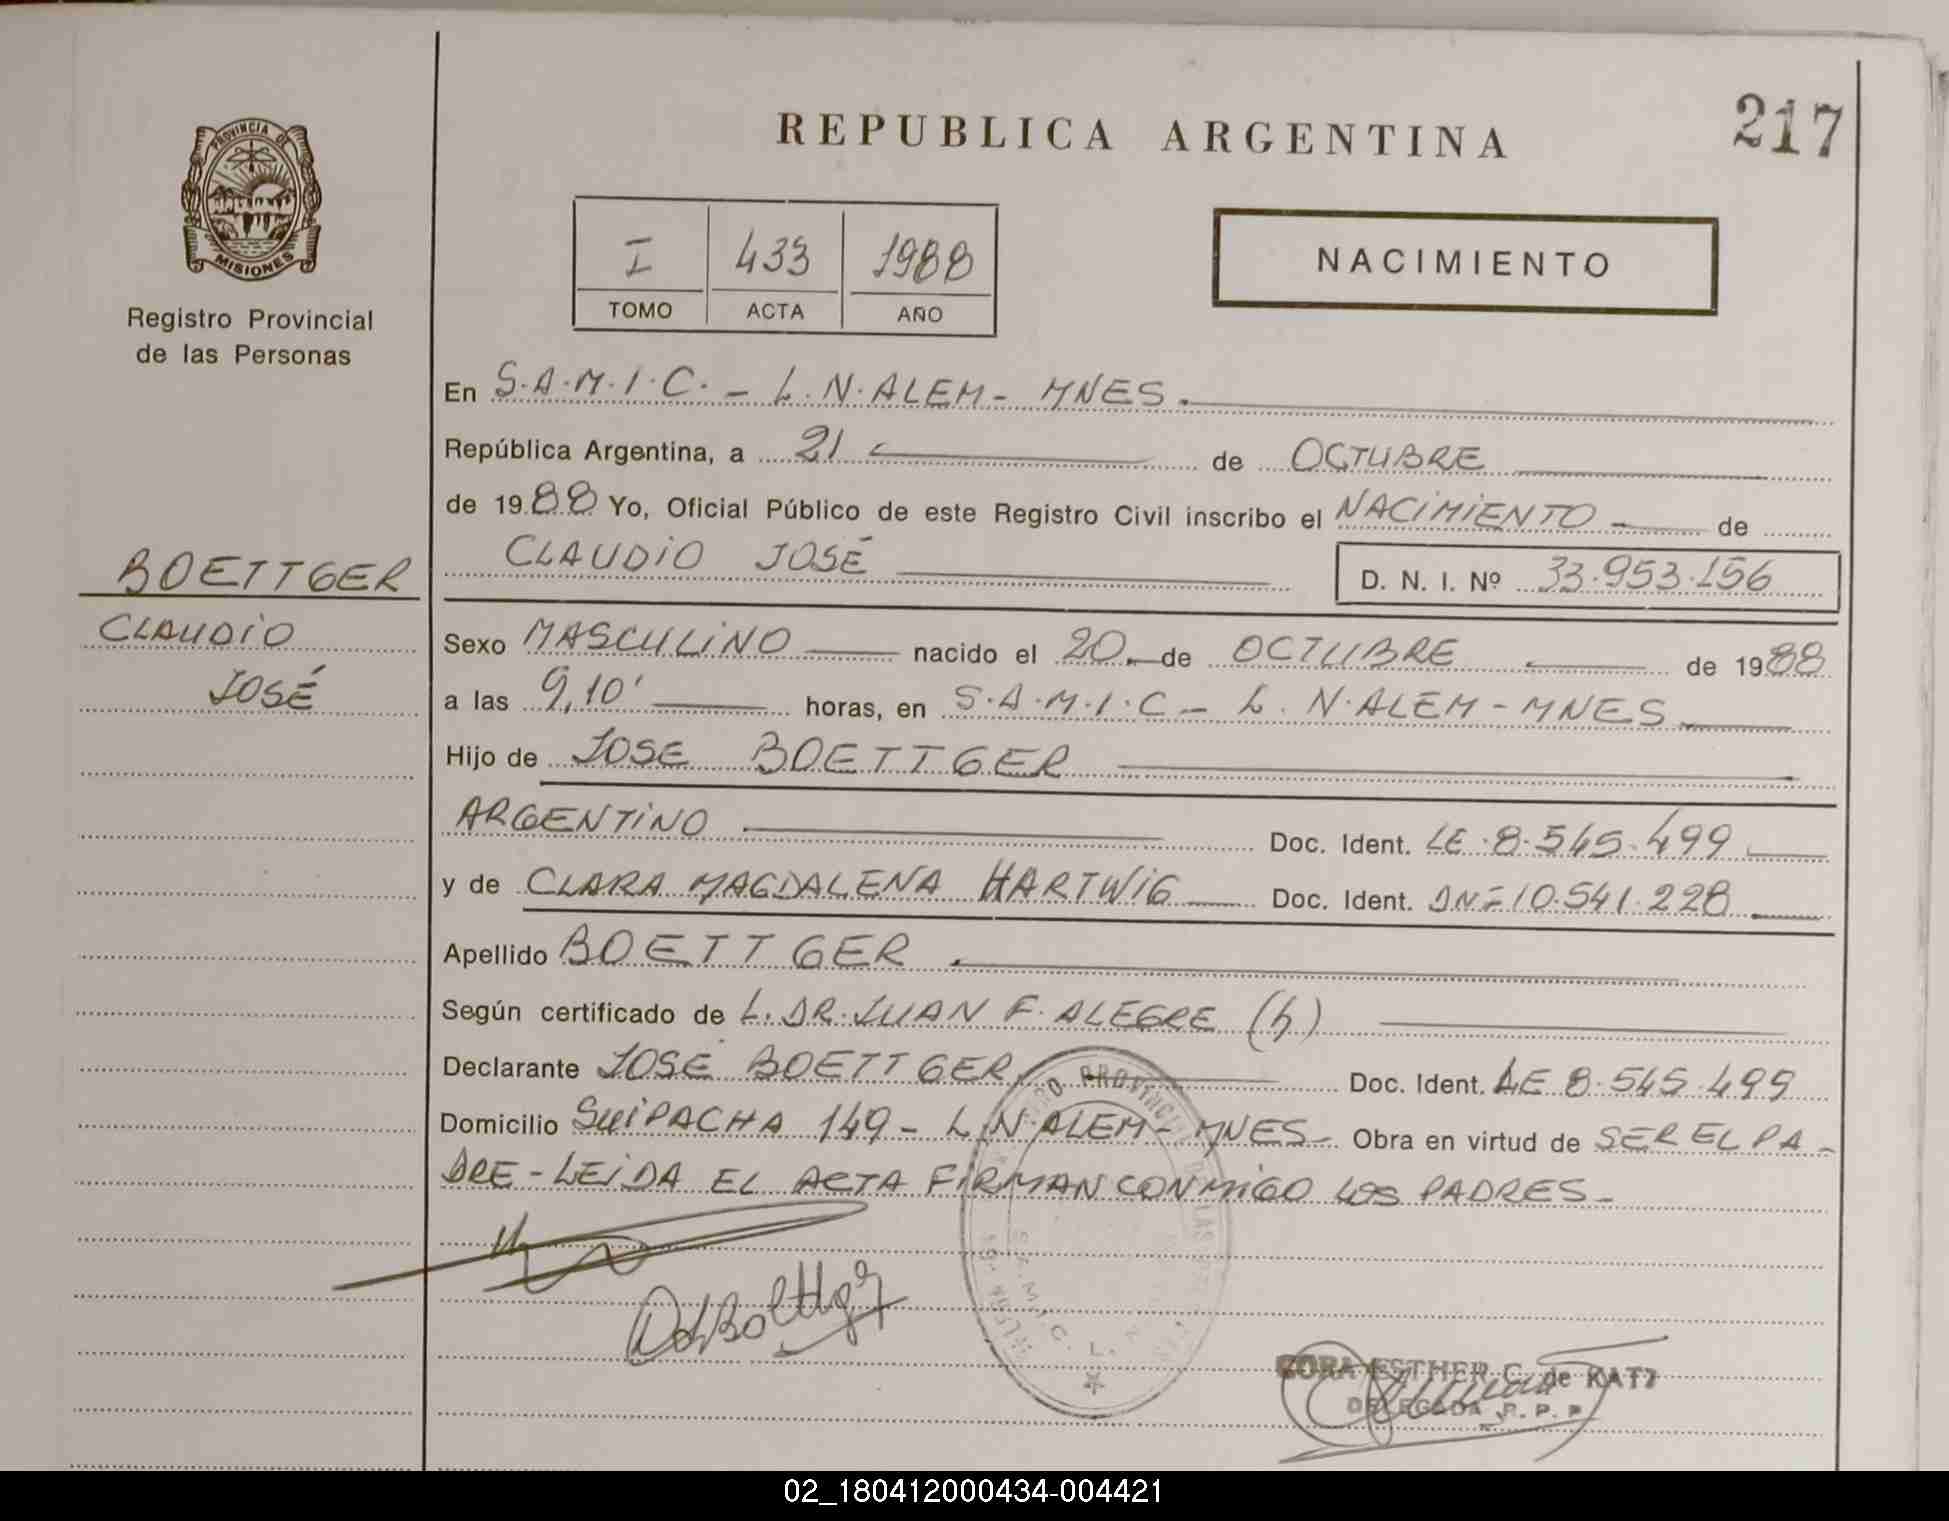 REPUBLICA ARGENTINA
217
PROVINCIA DE
MISIONES
Registro Provincial
de las Personas
I 433 1988
TOMO ACTA AÑO
NACIMIENTO
En S.A.M.I.C. - L.N.ALEM- MNES.
República Argentina, a 21 de OCTUBRE
de 1988 Yo, Oficial Público de este Registro Civil inscribo el NACIMIENTO de
CLAUDIO JOSÉ D. N. I. Nº 33.953.156
BOETTGER
CLAUDIO
JOSÉ
Sexo MASCULINO nacido el 20 de OCTUBRE de 1988
a las 9,10' horas, en S.A.M.I.C - L. N.ALEM - MNES
Hijo de JOSE BOETTGER
ARGENTINO Doc. Ident. LE.8.545.499
y de CLARA MAGDALENA HARTWIG Doc. Ident. DNI 10.541.228
Apellido BOETTGER.
Según certificado de L.DR.JUAN F. ALEGRE (h)
Declarante JOSÉ BOETTGER Doc. Ident. LE 8.545.499
Domicilio SUIPACHA 149 - L.N.ALEM- MNES- Obra en virtud de SER EL PA-
DRE - LEIDA EL ACTA FIRMAN CONMIGO LOS PADRES-
S.A.M.I.C. L. N.
CORA ESTHER C. de KATZ
DELEGADA R. P. P.
02_180412000434-004421